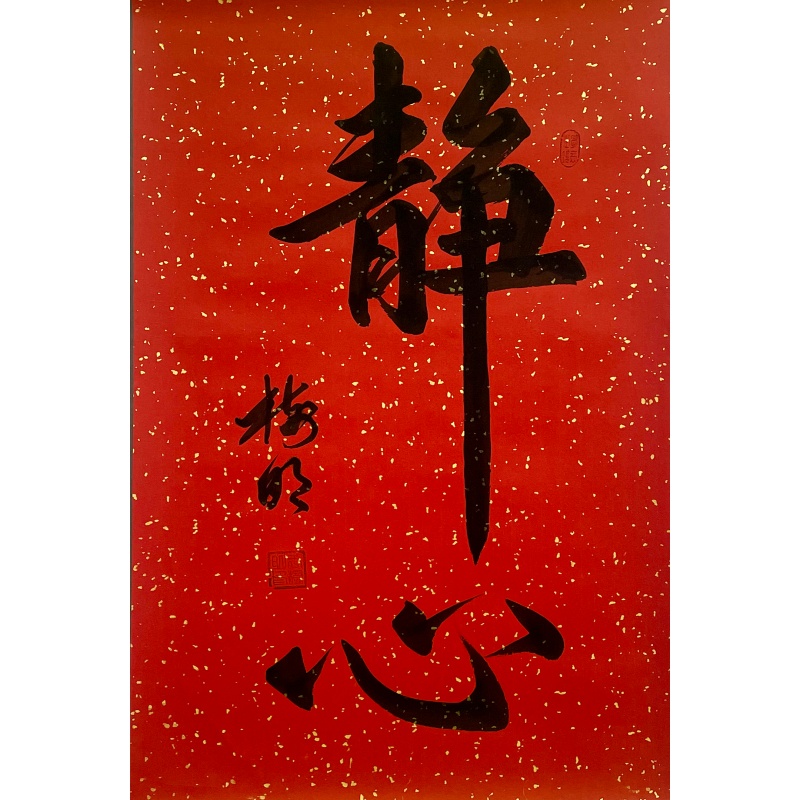 静心
梅明